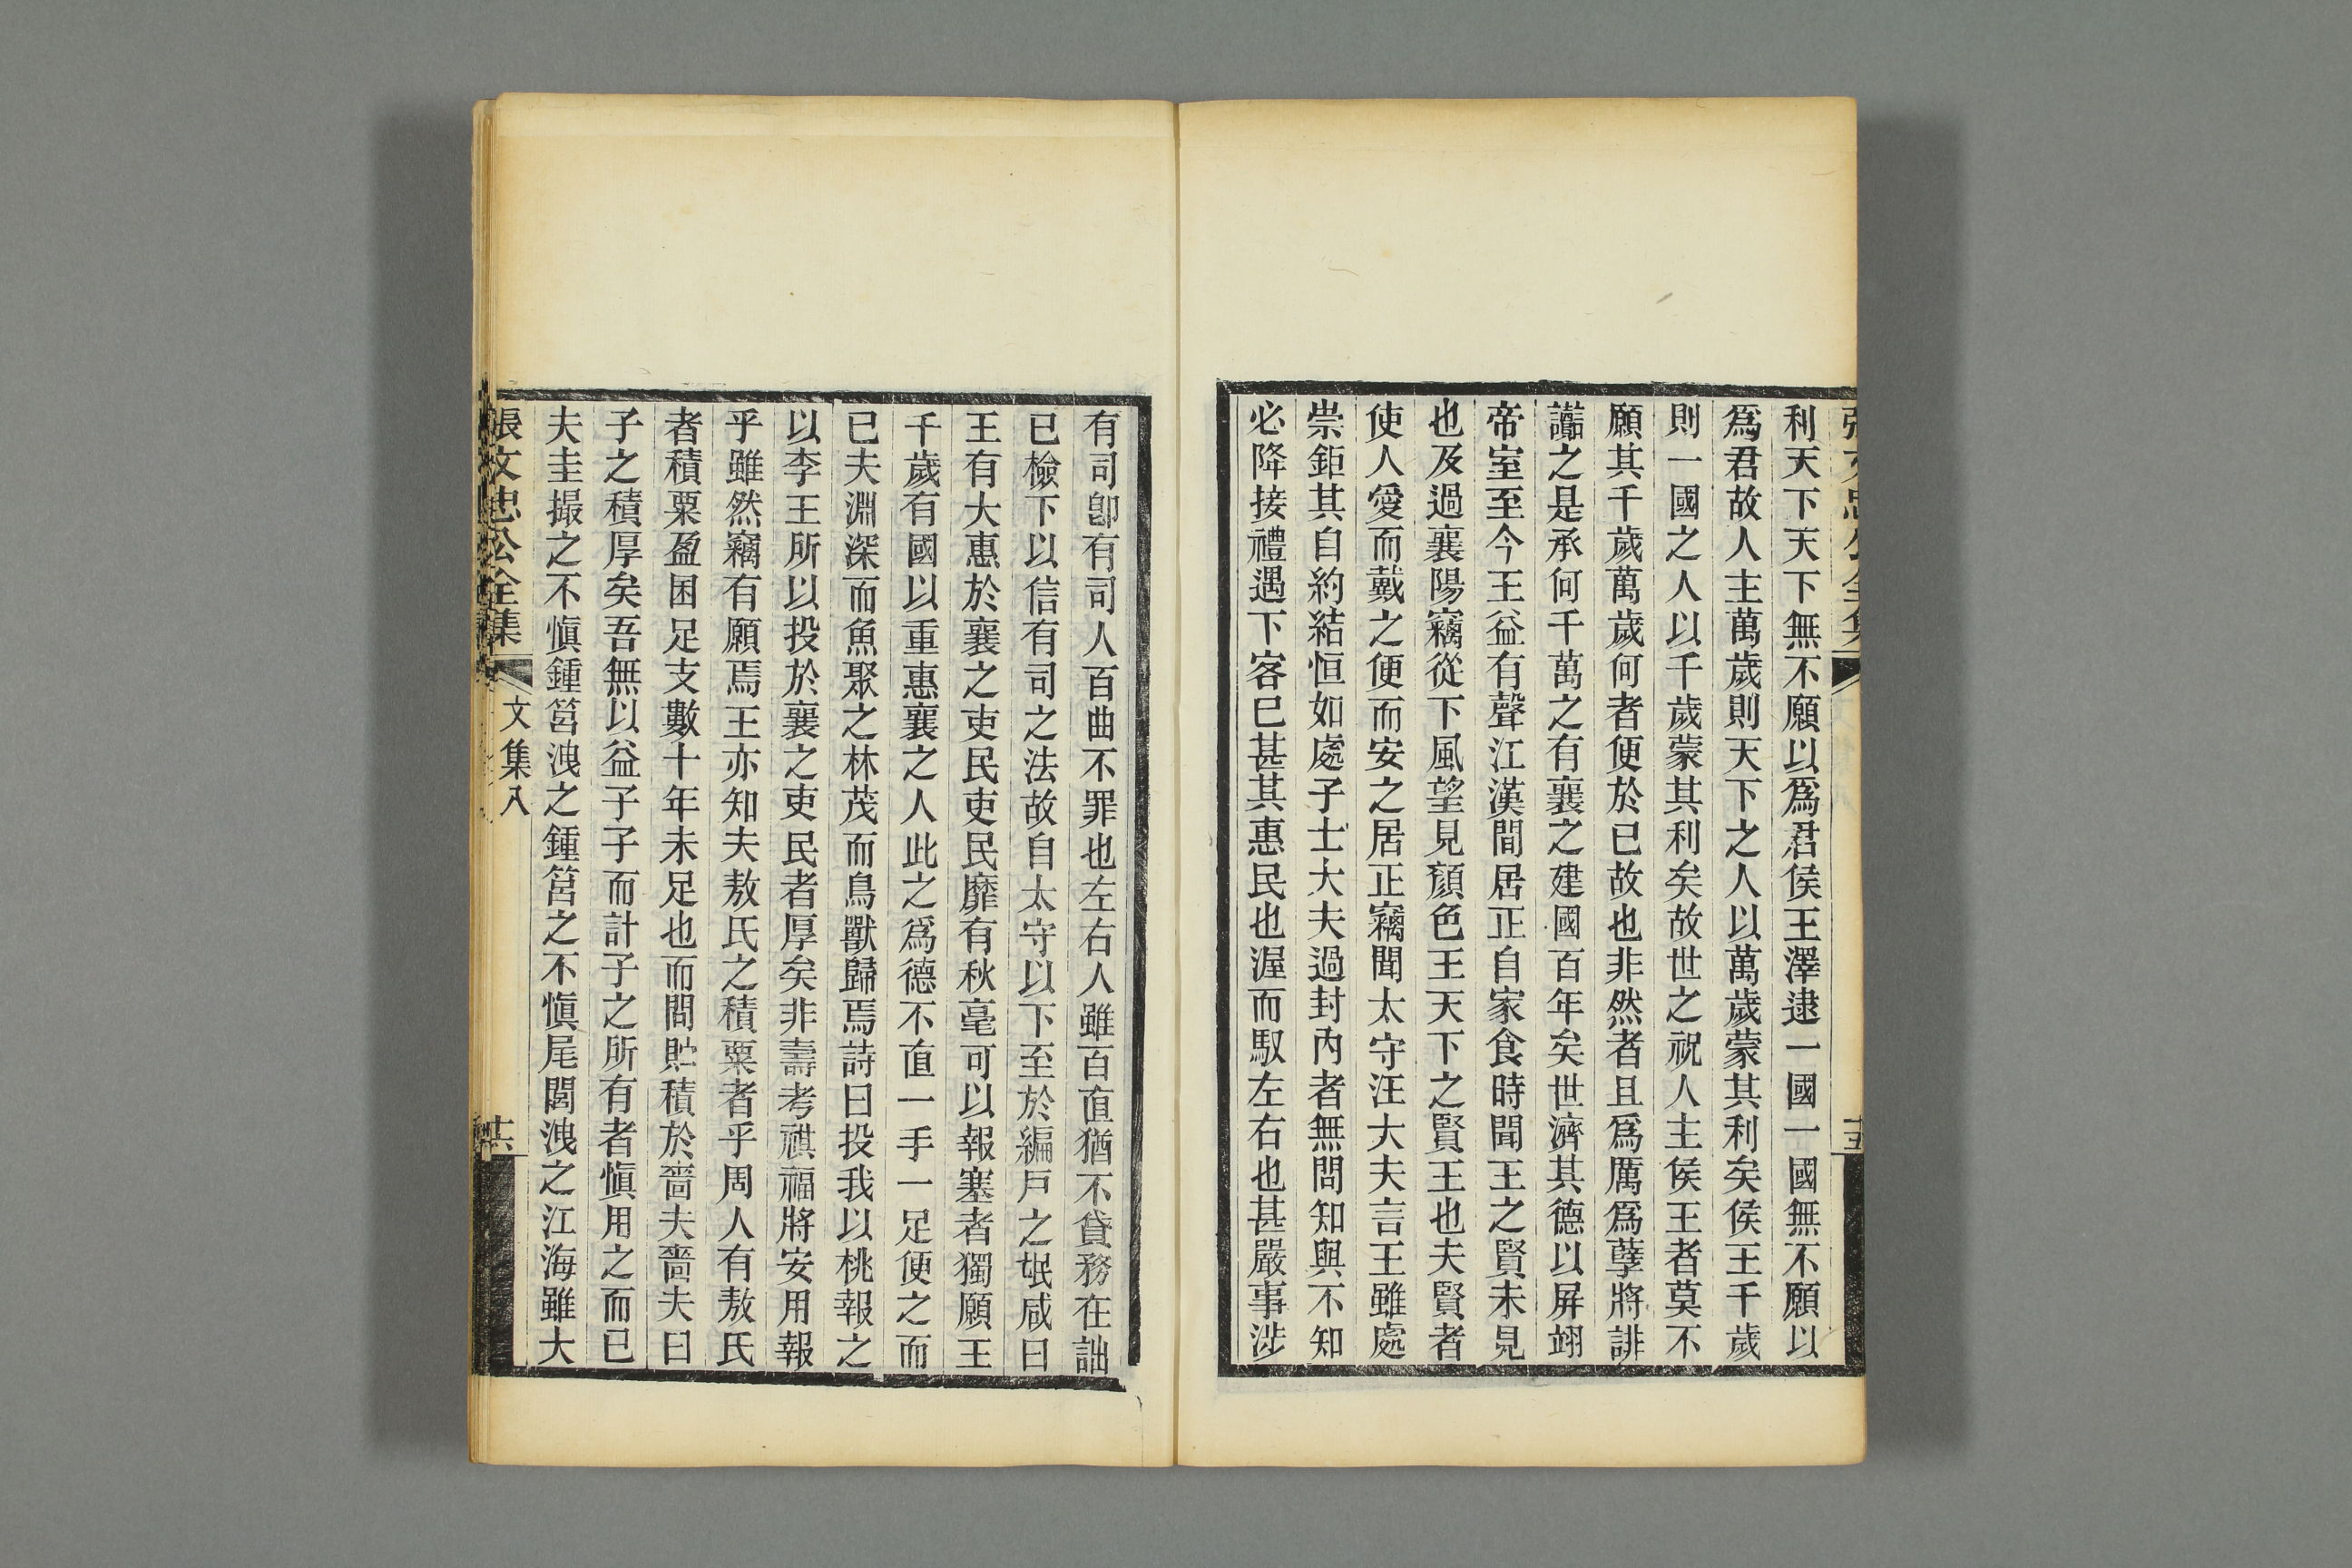 張文忠公全集
十五
利天下天下無不願以爲君侯王澤逮一國一國無不願以
爲君故人主萬歲則天下之人以萬歲蒙其利矣侯王千歲
則一國之人以千歲蒙其利矣故世之祝人主侯王者莫不
願其千歲萬歲何者便於已故也非然者且爲厲爲孽將誹
讟之是承何千萬之有襄之建國百年矣世濟其德以屏翊
帝室至今王益有聲江漢間居正自家食時聞王之賢未見
也及過襄陽竊從下風望見顏色王天下之賢王也夫賢者
使人愛而戴之便而安之居正竊聞太守汪大夫言王雖處
崇鉅其自約結恒如處子士大夫過封內者無問知與不知
必降接禮遇下客已甚其惠民也渥而馭左右也甚嚴事涉
有司卽有司人百曲不罪也左右人雖百直猶不貸務在詘
已檢下以信有司之法故自太守以下至於編戸之氓咸曰
王有大惠於襄之吏民吏民靡有秋毫可以報塞者獨願王
千歲有國以重惠襄之人此之爲德不直一手一足便之而
已夫淵深而魚聚之林茂而鳥獸歸焉詩曰投我以桃報之
以李王所以投於襄之吏民者厚矣非壽考祺福將安用報
乎雖然竊有願焉王亦知夫敖氏之積粟者乎周人有敖氏
者積粟盈囷足支數十年未足也而問貯積於嗇夫嗇夫曰
子之積厚矣吾無以益子子而計子之所有者愼用之而已
夫圭撮之不愼鍾筥洩之鍾筥之不愼尾閭洩之江海雖大
張文忠公全集
文集八
十六